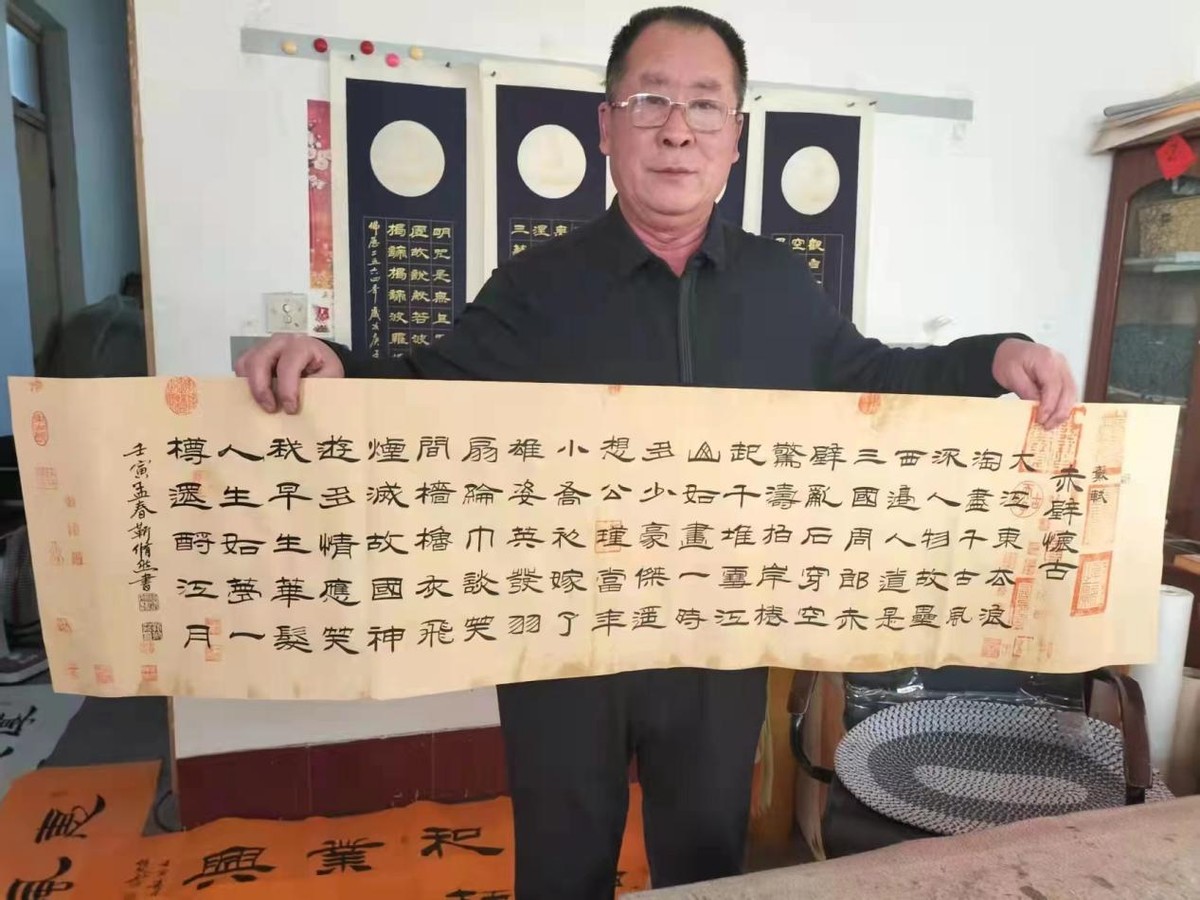 赤壁懷古
蘇軾
大江東去浪
淘盡千古風
流人物故壘
西邊人道是
三國周郎赤
壁亂石穿空
驚濤拍岸捲
起千堆雪江
山如畫一時
多少豪傑遙
想公瑾當年
小喬初嫁了
雄姿英發羽
扇綸巾談笑
間檣櫓灰飛
煙滅故國神
遊多情應笑
我早生華髮
人生如夢一
樽還酹江月
壬寅孟春靳脩然書
觀自
空
涅
三
明咒是無上
虛故說般若波
揭諦揭諦波羅
佛歷二五六四年歲次庚子
和
業
興